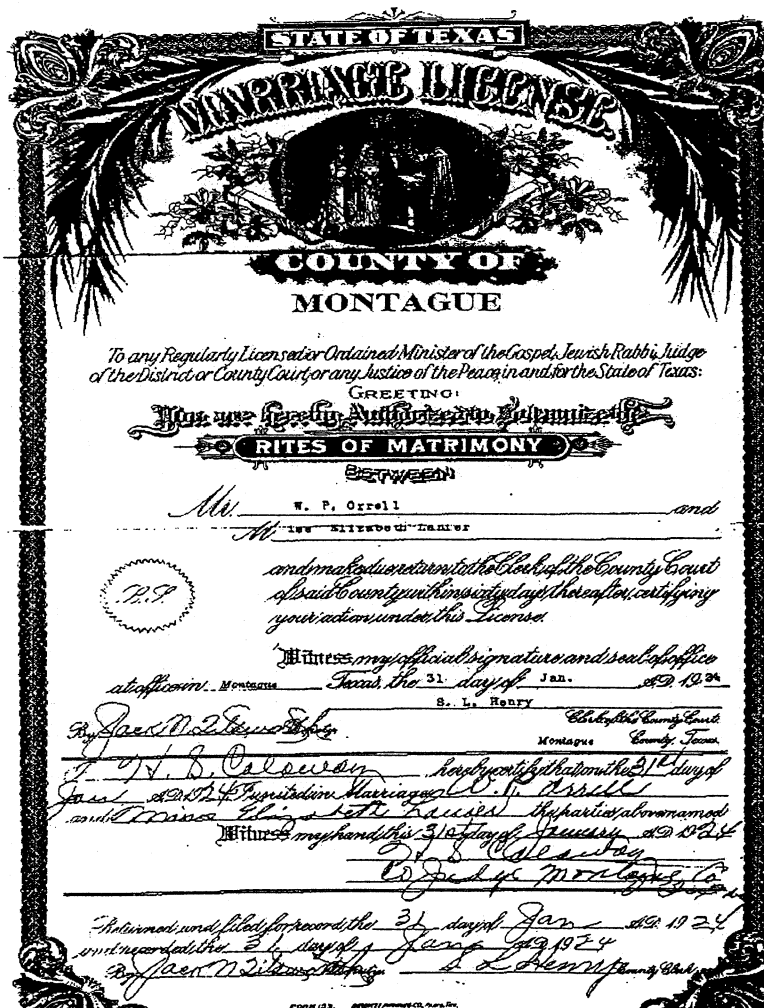 STATE OF TEXAS
MARRIAGE LICENSE.
COUNTY OF
MONTAGUE
To any Regularly Licensed or Ordained Minister of the Gospel, Jewish Rabbi, Judge
of the District or County Court, or any Justice of the Peace in and for the State of Texas:
GREETING:
You are hereby Authorized to Solemnize the
RITES OF MATRIMONY
BETWEEN
Mr. W. P. Orrell and
M iss Elizabeth Lanier
and make due return to the Clerk of the County Court
of said County within sixty days thereafter, certifying
your action under this License.
L.S.
Witness my official signature and seal of office
at office in Montague Texas, the 31 day of Jan. A.D. 1924
S. L. Henry
By Jack Deputy Clerk of the County Court
Montague County, Texas
I H. S. Calaway hereby certify that on the 31st day of
Jan A.D. 1924 I united in Marriage W. P. Orrell
and Miss Elizabeth Lanier the parties above named
Witness my hand this 31st day of January A.D. 1924
H S Calaway
Co Judge Montague Co
Texas
Returned and filed for record the 31 day of Jan A.D. 1924
and recorded the 31 day of Jan A.D. 1924
By Jack Deputy S L Henry County Clerk